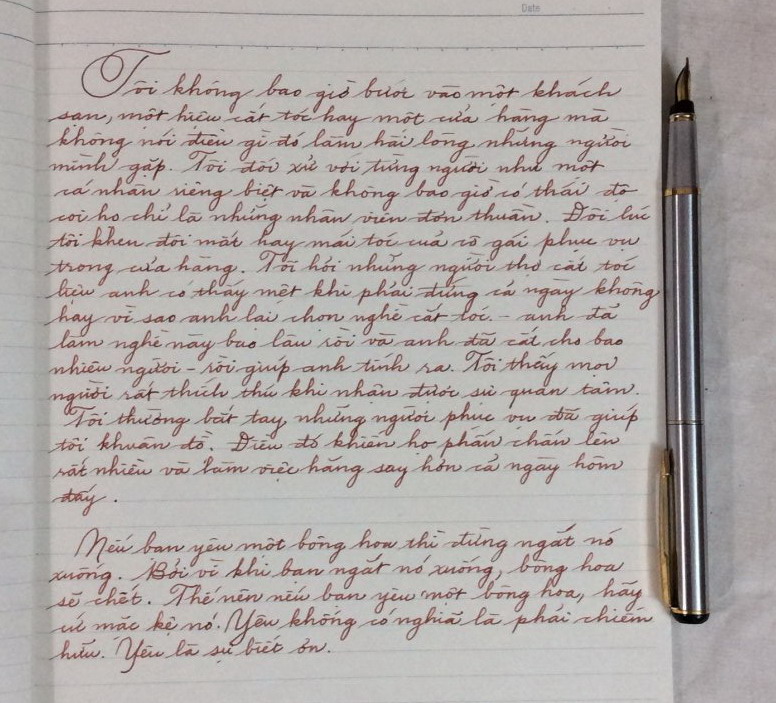 Date
Tôi không bao giờ bước vào một khách
sạn, một hiệu cắt tóc hay một cửa hàng mà
không nói điều gì đó làm hài lòng những người
mình gặp. Tôi đối xử với từng người như một
cá nhân riêng biệt và không bao giờ có thái độ
coi họ chỉ là những nhân viên đơn thuần. Đôi lúc
tôi khen đôi mắt hay mái tóc của cô gái phục vụ
trong cửa hàng. Tôi hỏi những người thợ cắt tóc
liệu anh có thấy mệt khi phải đứng cả ngày không
hay vì sao anh lại chọn nghề cắt tóc - anh đã
làm nghề này bao lâu rồi và anh đã cắt cho bao
nhiêu người - rồi giúp anh tính ra. Tôi thấy mọi
người rất thích thú khi nhận được sự quan tâm.
Tôi thường bắt tay những người phục vụ đã giúp
tôi khuân đồ. Điều đó khiến họ phấn chấn lên
rất nhiều và làm việc hăng say hơn cả ngày hôm
đấy.
Nếu bạn yêu một bông hoa thì đừng ngắt nó
xuống. Bởi vì khi bạn ngắt nó xuống, bông hoa
sẽ chết. Thế nên nếu bạn yêu một bông hoa, hãy
cứ mặc kệ nó. Yêu không có nghĩa là phải chiếm
hữu. Yêu là sự biết ơn.